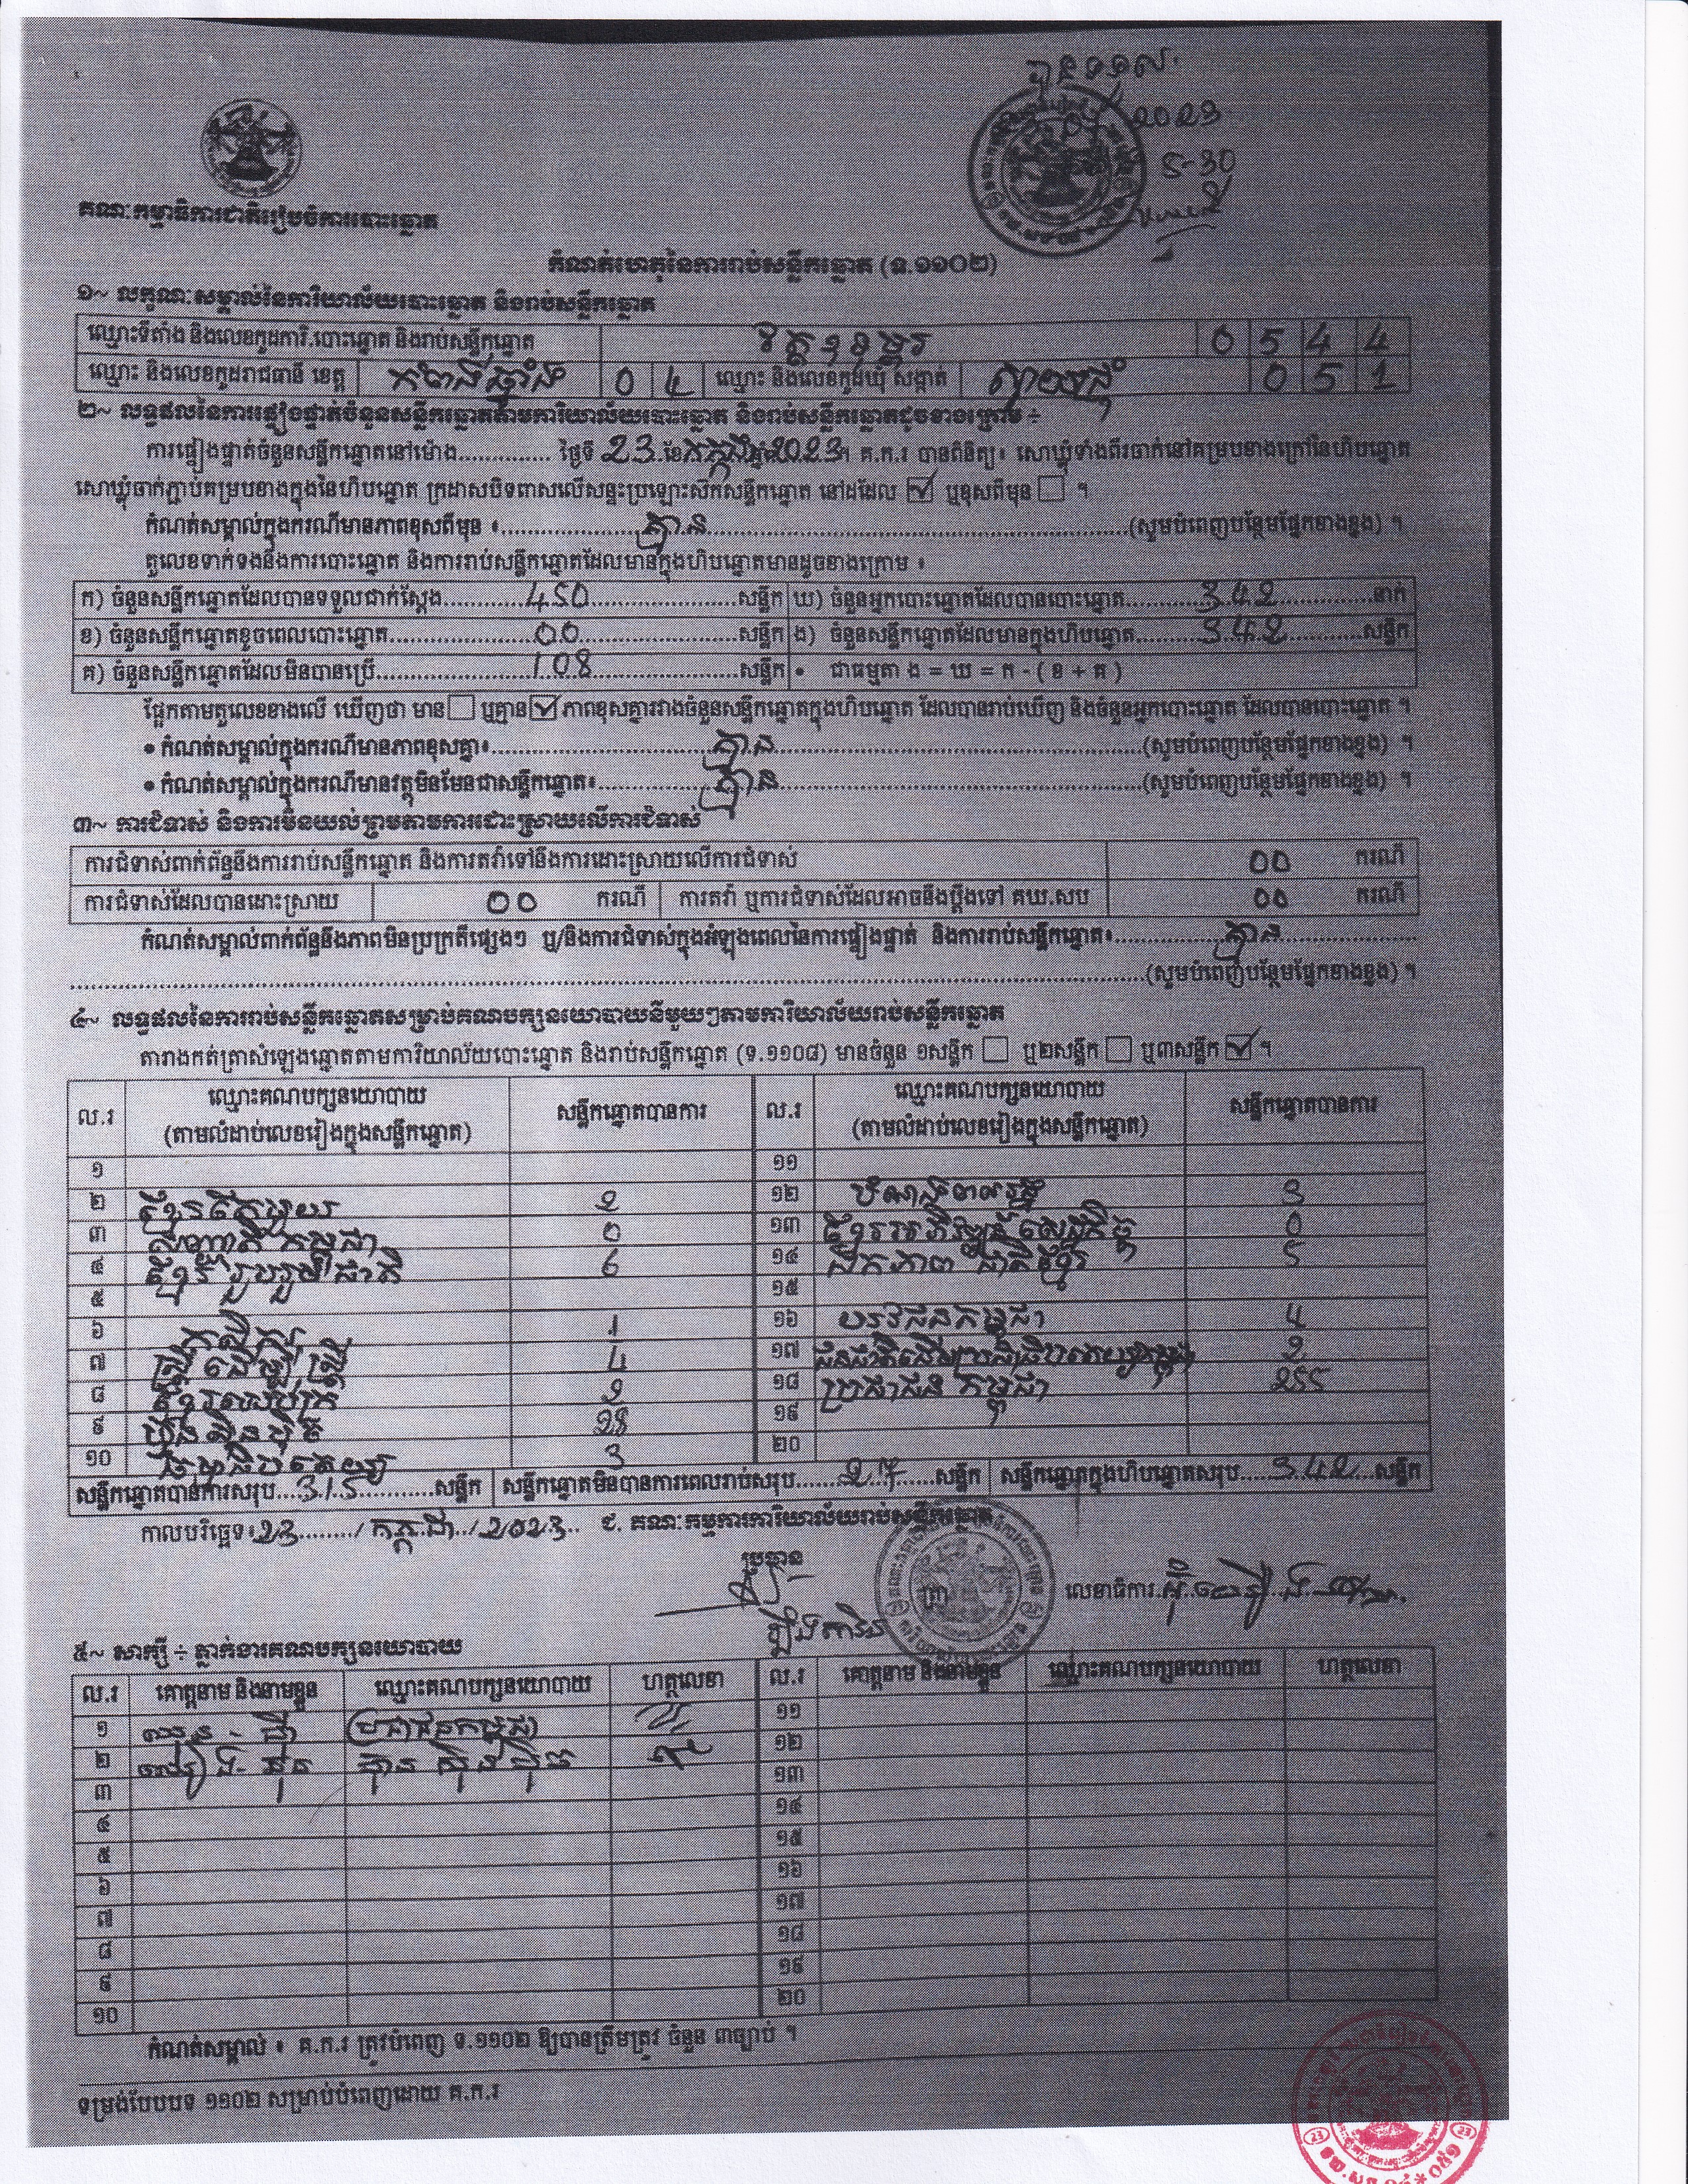 2023
5-30
គណៈកម្មាធិការជាតិរៀបចំការបោះឆ្នោត
កំណត់ហេតុនៃការរាប់សន្លឹកឆ្នោត (ទ.១១០២)
១~ លក្ខណៈសម្គាល់នៃការិយាល័យបោះឆ្នោត និងរាប់សន្លឹកឆ្នោត
ឈ្មោះទីតាំង និងលេខកូដការិ.បោះឆ្នោត និងរាប់សន្លឹកឆ្នោត 0 5 4 4
ឈ្មោះ និងលេខកូដរាជធានី ខេត្ត កំពង់ឆ្នាំង 0 4 ឈ្មោះ និងលេខកូដឃុំ សង្កាត់ ស្វាយជ្រុំ 0 5 1
២~ លទ្ធផលនៃការផ្ទៀងផ្ទាត់ចំនួនសន្លឹកឆ្នោតតាមការិយាល័យបោះឆ្នោត និងរាប់សន្លឹកឆ្នោតដូចខាងក្រោម ÷
ការផ្ទៀងផ្ទាត់ចំនួនសន្លឹកឆ្នោតនៅម៉ោង.............. ថ្ងៃទី 23 ខែ កក្កដា 2023 ។ គ.ក.រ បានពិនិត្យ៖ សោឃ្មុំទាំងពីរចាក់នៅគម្របខាងក្រៅនៃហិបឆ្នោត
សោឃ្មុំចាក់ភ្ជាប់គម្របខាងក្នុងនៃហិបឆ្នោត ក្រដាសបិទពាសលើសន្ទះប្រឡោះស៊កសន្លឹកឆ្នោត នៅដដែល ☑ ឬខុសពីមុន ☐ ។
កំណត់សម្គាល់ក្នុងករណីមានភាពខុសពីមុន ៖ គ្មាន (សូមបំពេញបន្ថែមផ្នែកខាងខ្នង) ។
តួលេខទាក់ទងនឹងការបោះឆ្នោត និងការរាប់សន្លឹកឆ្នោតដែលមានក្នុងហិបឆ្នោតមានដូចខាងក្រោម ៖
ក) ចំនួនសន្លឹកឆ្នោតដែលបានទទួលជាក់ស្តែង 450 សន្លឹក ឃ) ចំនួនអ្នកបោះឆ្នោតដែលបានបោះឆ្នោត 342 នាក់
ខ) ចំនួនសន្លឹកឆ្នោតខូចពេលបោះឆ្នោត 00 សន្លឹក ង) ចំនួនសន្លឹកឆ្នោតដែលមានក្នុងហិបឆ្នោត 342 សន្លឹក
គ) ចំនួនសន្លឹកឆ្នោតដែលមិនបានប្រើ 108 សន្លឹក • ជាធម្មតា ង = ឃ = ក - ( ខ + គ )
ផ្អែកតាមតួលេខខាងលើ ឃើញថា មាន ☐ ឬគ្មាន ☑ ភាពខុសគ្នារវាងចំនួនសន្លឹកឆ្នោតក្នុងហិបឆ្នោត ដែលបានរាប់ឃើញ និងចំនួនអ្នកបោះឆ្នោត ដែលបានបោះឆ្នោត ។
• កំណត់សម្គាល់ក្នុងករណីមានភាពខុសគ្នា៖ គ្មាន (សូមបំពេញបន្ថែមផ្នែកខាងខ្នង) ។
• កំណត់សម្គាល់ក្នុងករណីមានវត្ថុមិនមែនជាសន្លឹកឆ្នោត៖ គ្មាន (សូមបំពេញបន្ថែមផ្នែកខាងខ្នង) ។
៣~ ការជំទាស់ និងការមិនយល់ព្រមតាមការដោះស្រាយលើការជំទាស់
ការជំទាស់ពាក់ព័ន្ធនឹងការរាប់សន្លឹកឆ្នោត និងការតវ៉ាទៅនឹងការដោះស្រាយលើការជំទាស់ 00 ករណី
ការជំទាស់ដែលបានដោះស្រាយ 00 ករណី ការតវ៉ា ឬការជំទាស់ដែលអាចនឹងប្តឹងទៅ គឃ.សប 00 ករណី
កំណត់សម្គាល់ពាក់ព័ន្ធនឹងភាពមិនប្រក្រតីផ្សេងៗ ឬ/និងការជំទាស់ក្នុងអំឡុងពេលនៃការផ្ទៀងផ្ទាត់ និងការរាប់សន្លឹកឆ្នោត៖ គ្មាន
(សូមបំពេញបន្ថែមផ្នែកខាងខ្នង) ។
៤~ លទ្ធផលនៃការរាប់សន្លឹកឆ្នោតសម្រាប់គណបក្សនយោបាយនីមួយៗតាមការិយាល័យរាប់សន្លឹកឆ្នោត
តារាងកត់ត្រាសំឡេងឆ្នោតតាមការិយាល័យបោះឆ្នោត និងរាប់សន្លឹកឆ្នោត (ទ.១១០៨) មានចំនួន ១សន្លឹក ☐ ឬ២សន្លឹក ☐ ឬ៣សន្លឹក ☑ ។
ល.រ ឈ្មោះគណបក្សនយោបាយ (តាមលំដាប់លេខរៀងក្នុងសន្លឹកឆ្នោត) សន្លឹកឆ្នោតបានការ ល.រ ឈ្មោះគណបក្សនយោបាយ (តាមលំដាប់លេខរៀងក្នុងសន្លឹកឆ្នោត) សន្លឹកឆ្នោតបានការ
១ ១១
២ 2 ១២ 3
៣ 0 ១៣ ខ្មែរអភិវឌ្ឍន៍សេដ្ឋកិច្ច 0
៤ ខ្មែររួបរួមជាតិ 6 ១៤ ឯកភាពជាតិខ្មែរ 5
៥ ១៥
៦ កសិករ 1 ១៦ 4
៧ ស្ត្រីដើម្បីស្ត្រី 4 ១៧ 2
៨ 2 ១៨ ប្រជាជនកម្ពុជា 255
៩ ហ្វ៊ុនស៊ិនប៉ិច 28 ១៩
១០ 3 ២០
សន្លឹកឆ្នោតបានការសរុប 315 សន្លឹក សន្លឹកឆ្នោតមិនបានការពេលរាប់សរុប 27 សន្លឹក សន្លឹកឆ្នោតក្នុងហិបឆ្នោតសរុប 342 សន្លឹក
កាលបរិច្ឆេទ៖ 23 / កក្កដា / 2023 ជ. គណៈកម្មការការិយាល័យរាប់សន្លឹកឆ្នោត
ប្រធាន
លេខាធិការ
៥~ សាក្សី ÷ ភ្នាក់ងារគណបក្សនយោបាយ
ល.រ គោត្តនាម និងនាមខ្លួន ឈ្មោះគណបក្សនយោបាយ ហត្ថលេខា ល.រ គោត្តនាម និងនាមខ្លួន ឈ្មោះគណបក្សនយោបាយ ហត្ថលេខា
១ ប្រជាជនកម្ពុជា ១១
២ ហ្វ៊ុនស៊ិនប៉ិច ១២
៣ ១៣
៤ ១៤
៥ ១៥
៦ ១៦
៧ ១៧
៨ ១៨
៩ ១៩
១០ ២០
កំណត់សម្គាល់ ៖ គ.ក.រ ត្រូវបំពេញ ទ.១១០២ ឱ្យបានត្រឹមត្រូវ ចំនួន ៣ច្បាប់ ។
ទម្រង់បែបបទ ១១០២ សម្រាប់បំពេញដោយ គ.ក.រ